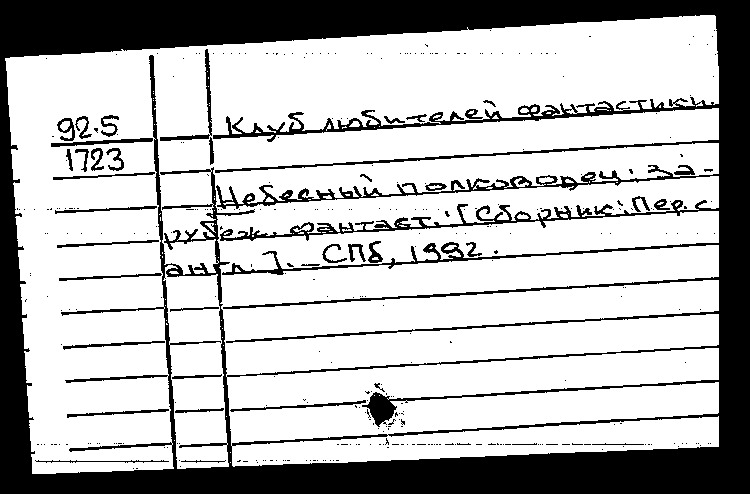 92.5
1723
Клуб любителей фантастики.
Небесный полководец: За-
рубеж. фантаст.: [Сборник: Пер. с
англ.]. - СПб, 1992.